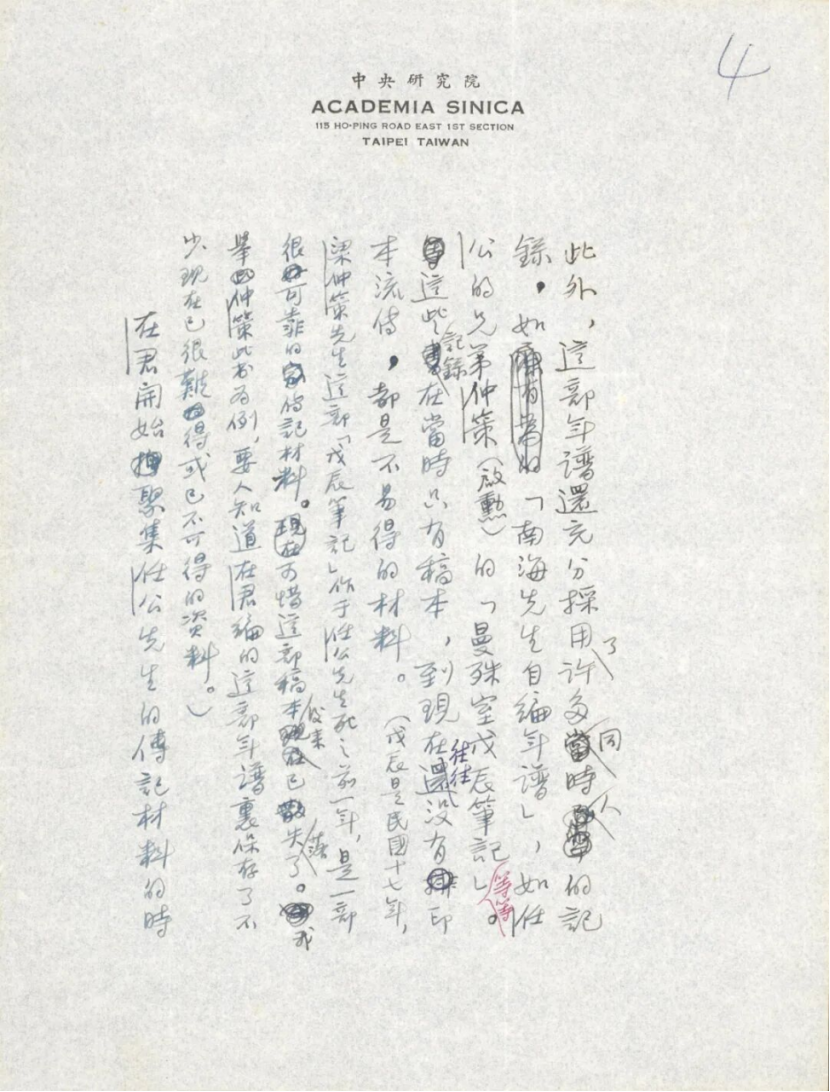 4
中央研究院
ACADEMIA SINICA
115 HO-PING ROAD EAST 1ST SECTION
TAIPEI TAIWAN
此外，這部年譜還充分採用了許多同時人的記
錄，如「南海先生自編年譜」，如任
公的兄弟仲策（啟勳）的「曼殊室戊辰筆記」等等。
這些記錄在當時只有稿本，到現在往往還沒有印
本流傳，都是不易得的材料。（戊辰是民國十七年，
梁仲策先生這部「戊辰筆記」作于任公先生死之前一年，是一部
很可靠的傳記材料。可惜這部稿本後來已失了。我
舉仲策此書為例，要人知道在君編的這部年譜裏保存了不
少現在已很難得或已不可得的資料。）
在君開始聚集任公先生的傳記材料的時